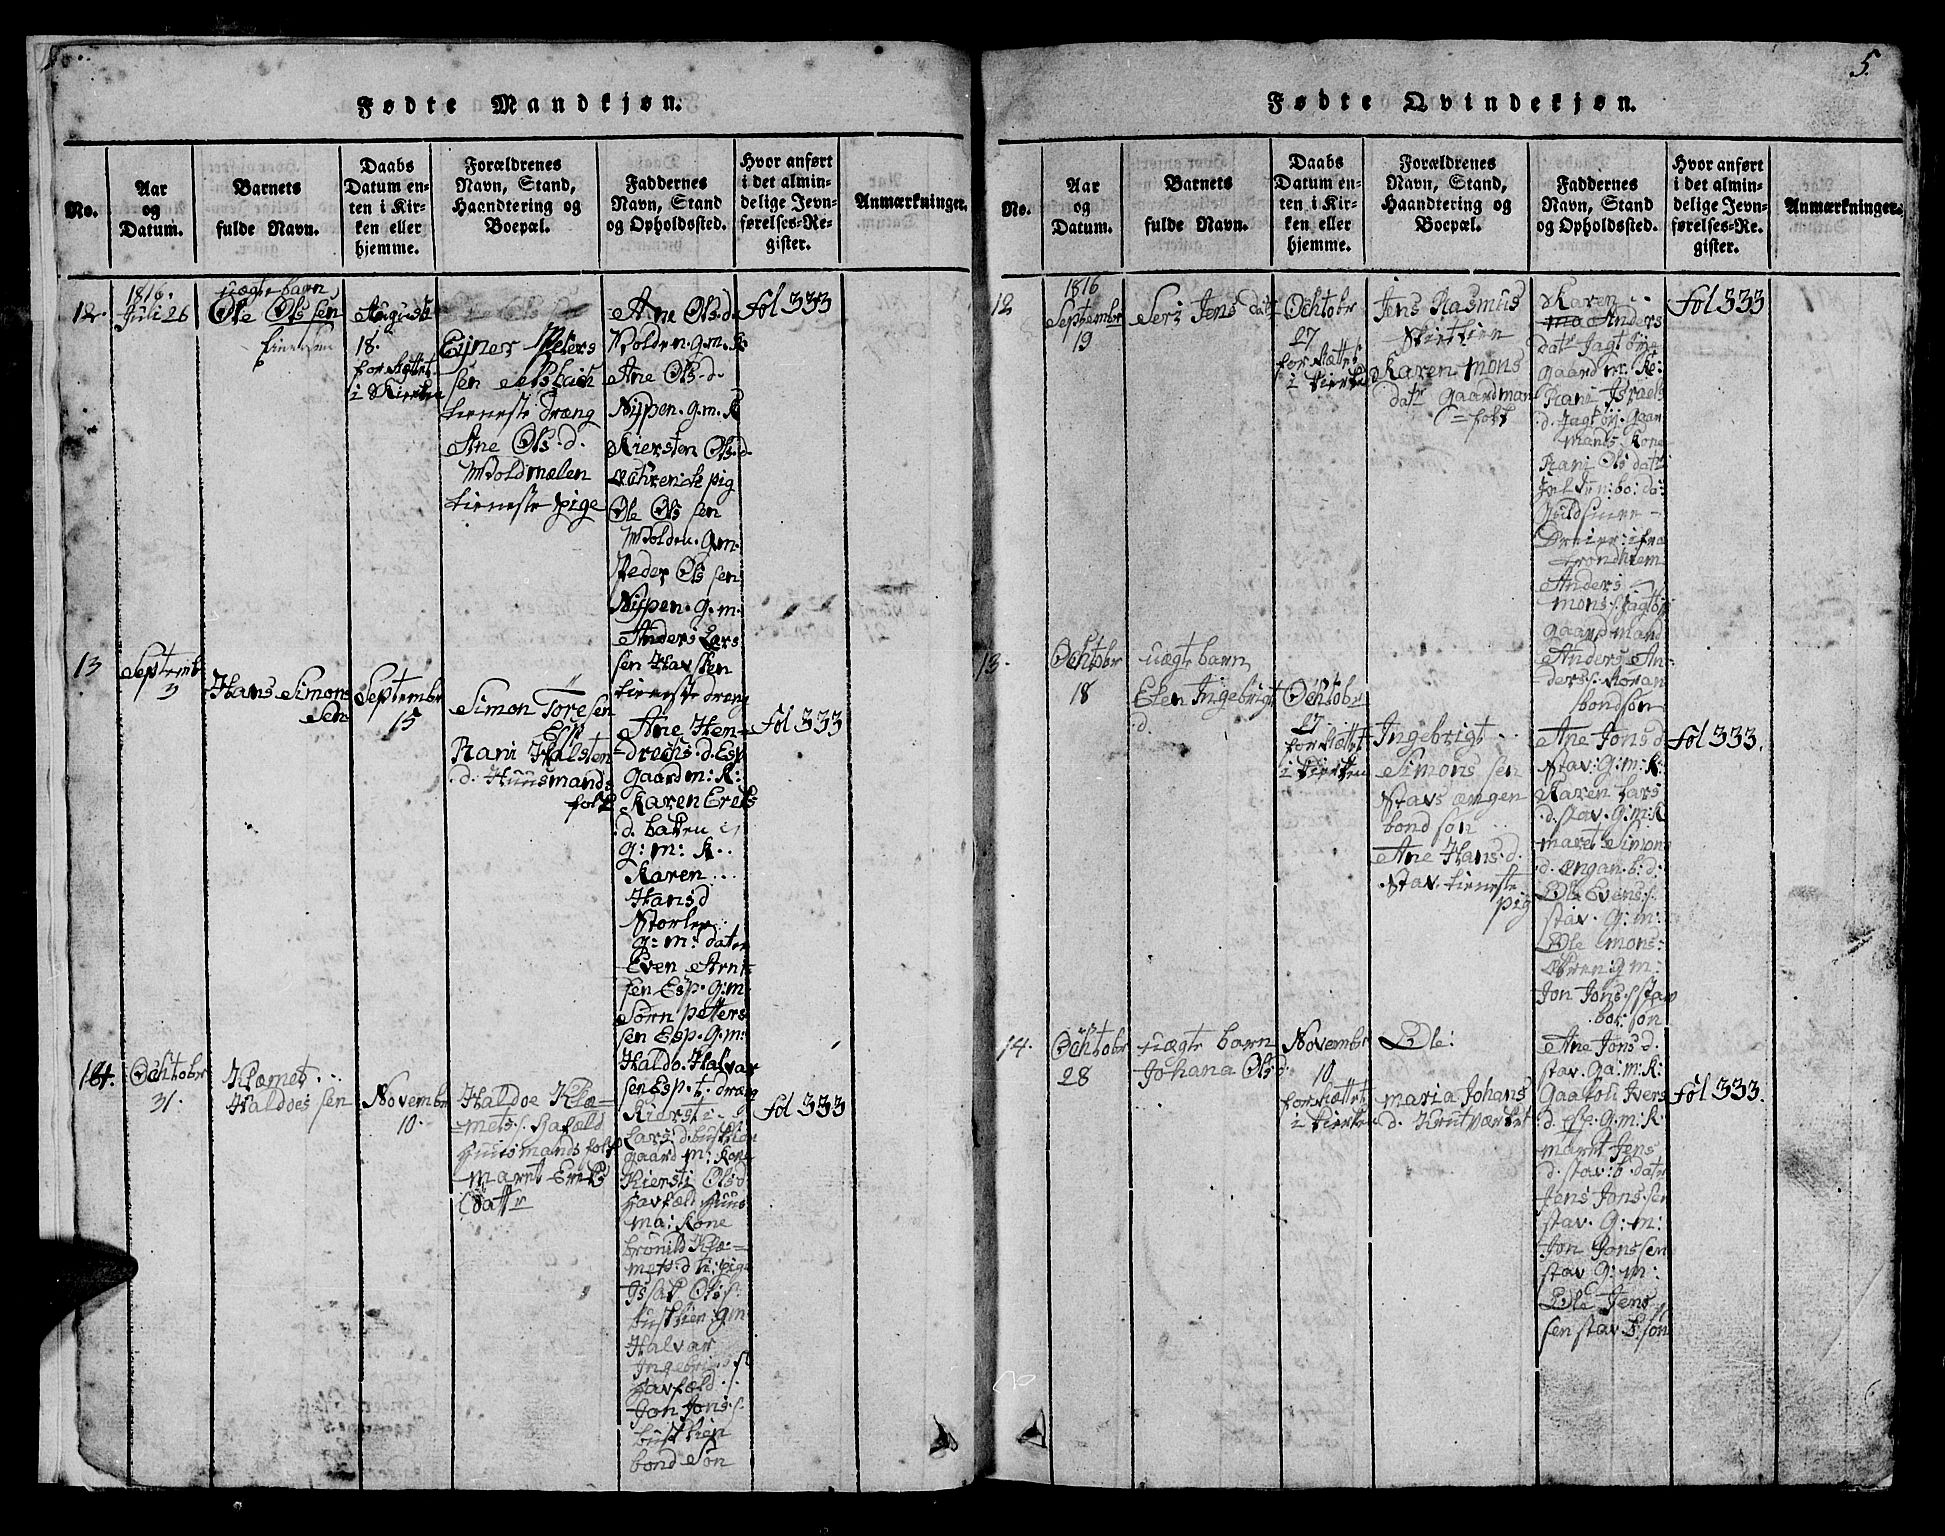 5.
Fødte Mandkjøn.
No.
Aar
og
Datum.
Barnets
fulde Navn.
Daabs
Datum en-
ten i Kir-
ken eller
hjemme.
Forældrenes
Navn, Stand,
Haandtering og
Boepæl.
Faddernes
Navn, Stand
og Opholdssted.
Hvor anført
i det almin-
delige Jevn-
førelses-Re-
gister.
Anmærkninger.
12.
1816.
Juli 26
uægte barn
Ole Ols sen
August
18.
for Rættet
i Kirken
Ejner Peters
sen
tieneste dræng
Ane Ols. d.
Moldmælen
tieneste pige
Ane Ols. d.
Molden. g. m. K
Ane Ols. d.
Nypen. g. m. K
Kiersten Ols. d.
pig
Ole Ols sen
Molden. g. m.
Peder Ols sen
Nypen. g. m.
Anders Lars
sen Havsken
tieneste dræng
fol 333
13
Septembr
3
Hans Simons
sen
Septembr
15
Simon Toresen
Esp
Rani Halsten
d. Huusmands
folk
Ane Hen-
drechs. d. Esp
gaard m: K:
Karen Ereks
d. batten
g: m: K.
Karen
Hans d
Storler
g: m: dater
Even Arnt
sen Esp. g: m:
Sørn petters
sen Esp. g. m:
Haldo. Halvar
sen Esp. t. dræng
fol 333
14.
Ochtober
31.
Klæmet
Haldoes sen
Novembr
10.
Haldoe Klæ=
mets s.
Huusmands folk
Maret Ereks
Datr
Kiersti
Lars d.
gaard m: Kone
Kiersti Ols d
Havfæld Huus
ma: Kone
brønild Klæ=
mets d ti: pige
Issak Ols s.
g m
Halvar
Ingebrigt s
Havfæld.
Jon Jons s.
bond Søn
fol 333
Fødte Qvindekjøn.
No.
Aar
og
Datum.
Barnets
fulde Navn.
Daabs
Datum en-
ten i Kir-
ken eller
hjemme.
Forældrenes
Navn, Stand,
Haandtering og
Boepæl.
Faddernes
Navn, Stand
og Opholdssted.
Hvor anført
i det almin-
delige Jevn-
førelses-Re-
gister.
Anmærkninger.
12
1816
Septembr
19
Seri Jens datr
Ochtobr
27
for Rættet
i kierken
Jens Rasmus
Karen Mons
datr gaardman
=folk
Karen
Anders
datr Jagtøye
gaard m. K:
Rani Israels
d. Jagtøy. gaar
mands Kone
Rani Ols datr
ifra
trondhiem
Anders
mons s. jagtøy
gaardmand
Anders An-
ders s.
bondsøn
fol 333
13.
Ochtobr
18
uægte barn
Elen Ingebrigt
d.
Ochtobr
27
for Rættet
i kierken
Ingebrigt
Simons sen
Stavs ængen
bond søn
Ane Hans. d.
Stav. tieneste
pig
Ane Jons d
Stav: g: m: K:
Karen Lars
d. stav. g: m: K
maret Simon
d. ængan. b: d:
Ole Evens s.
stav. g: m:
Ole mons:
g m:
Jon Jons. s stav
bon søn
fol 333.
14.
Ochtobr
28
uægte barn
Johana Ols d
Novembr
10
for Rættet
i kierken
Ole:
maria Johans
d. Krutværket
Ane Jons d.
stav. ga: m: K:
Ivers
d. g: m: K
maret Jens
d. stav: b datr
Jens Jons. sen
stav. g: m:
Jon Jons sen
stav g: m:
Ole Jens
sen stav b. søn
fol 333.